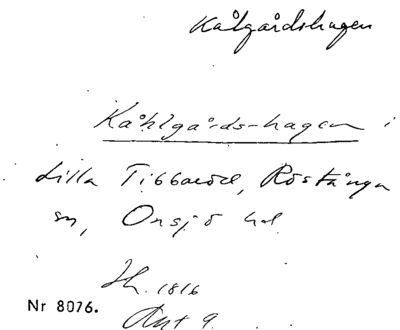 Kålgårdshagen
Kåhlgårds-hagen i
Lilla Tibbaröd, Röstånga
sn, Onsjö hd.
1816
Nr 8076.
Akt 9.